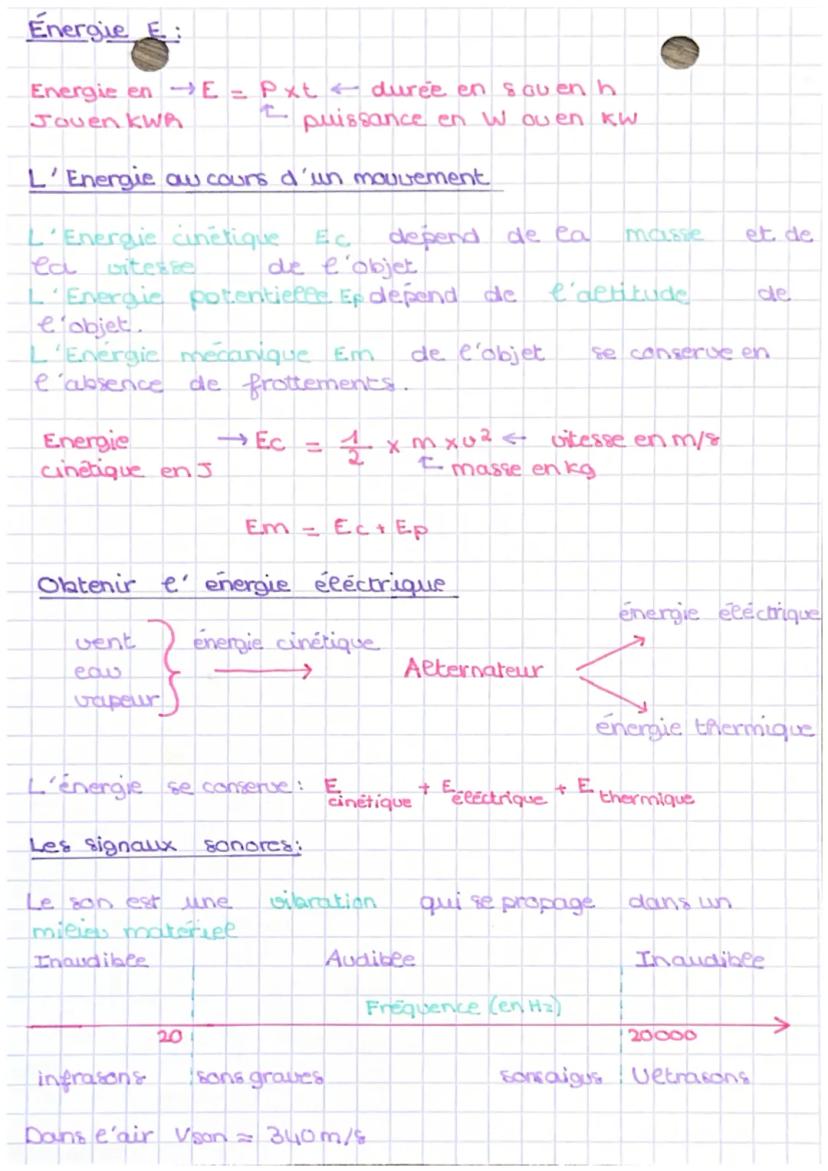 Énergie E :
Energie en → E = P x t ← durée en s ou en h
J ou en KWh ↑ puissance en W ou en KW
L'Energie au cours d'un mouvement
L'Energie cinétique Ec dépend de la masse et de
la vitesse de l'objet
L'Energie potentielle Ep dépend de l'altitude de
l'objet.
L'Energie mécanique Em de l'objet se conserve en
l'absence de frottements.
Energie → Ec = 1/2 x m x v² ← vitesse en m/s
cinétique en J ↑ masse en kg
Em = Ec + Ep
Obtenir l'énergie éléctrique
énergie éléctrique
vent énergie cinétique
eau → Alternateur
vapeur
énergie thermique
L'énergie se conserve : E cinétique + E éléctrique + E thermique
Les signaux sonores :
Le son est une vibration qui se propage dans un
milieu matériel
Inaudible Audible Inaudible
Fréquence (en Hz)
20 20000
infrasons sons graves sons aigus Ultrasons
Dans l'air Vson = 340 m/s